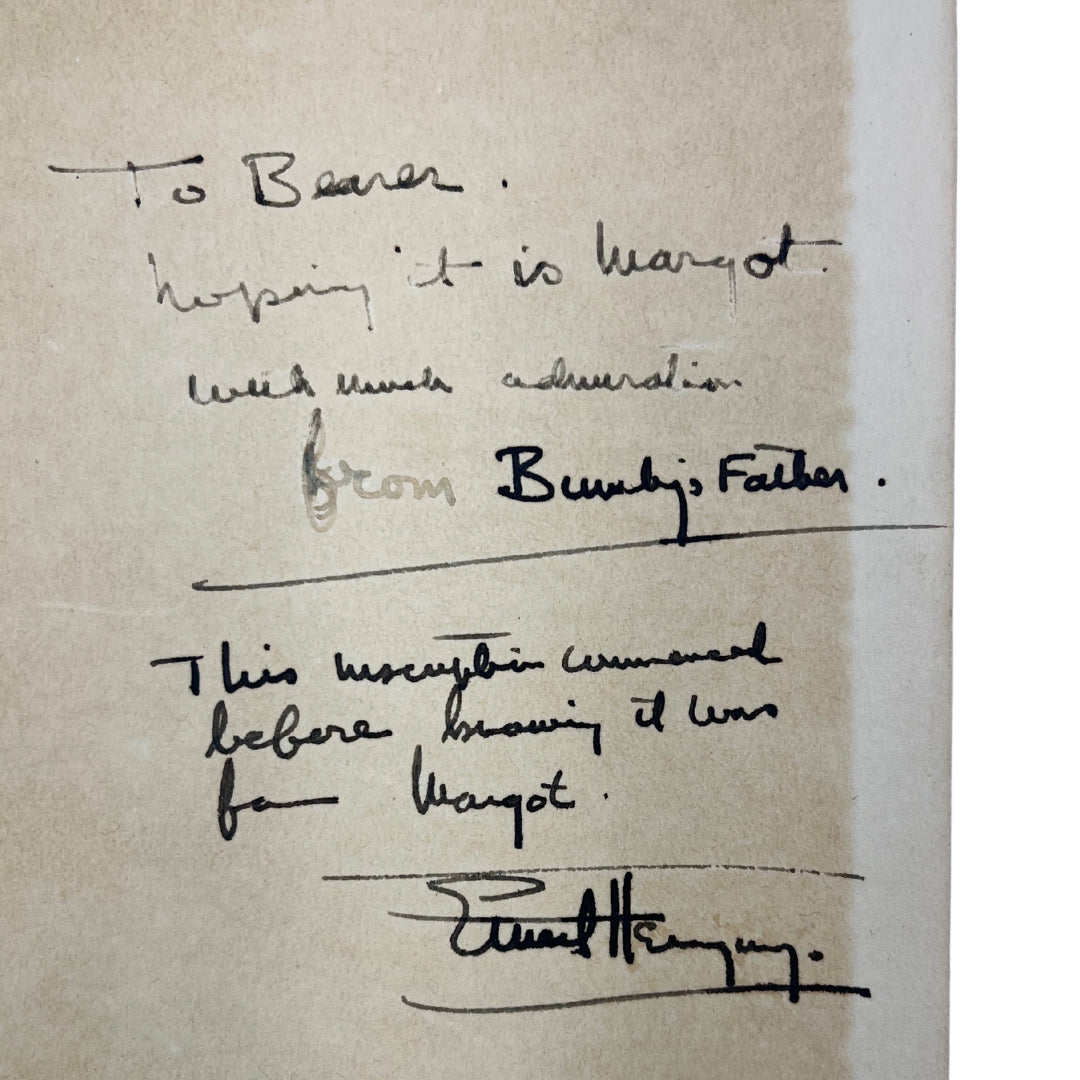 To Bearer.
hoping it is Margot.
with much admiration
from Bumby's Father.
This inscription commenced
before knowing it was
for Margot.
Ernest Hemingway.